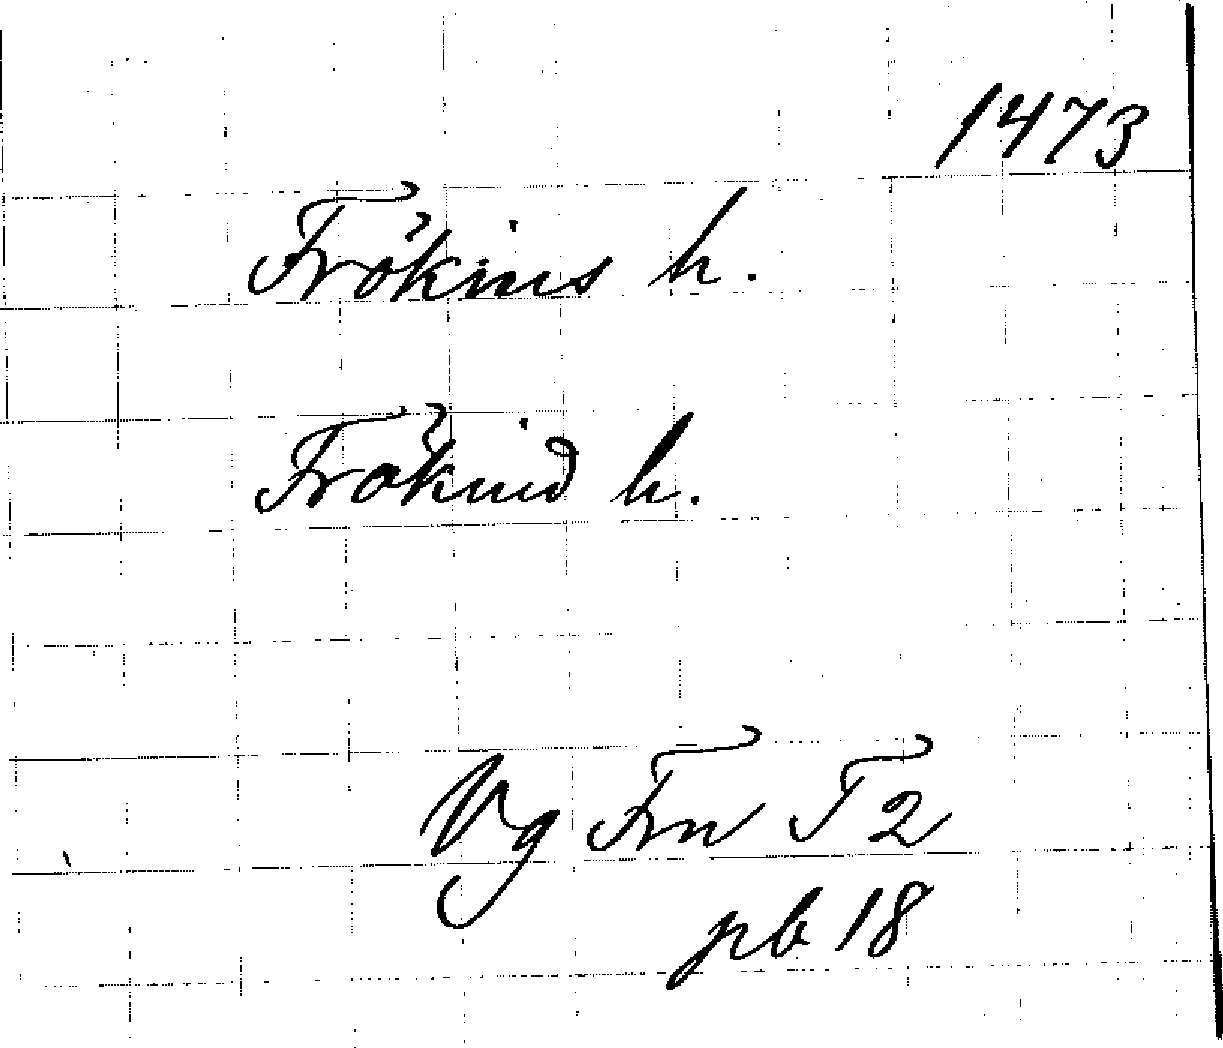 1473
Frökins h.
Frökind h.
Vg Frn T 2
pb 18